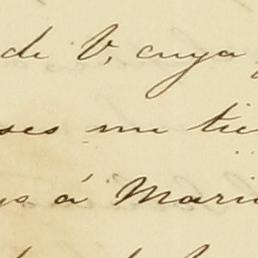 de V, cuya
ses me tie
s á Mari